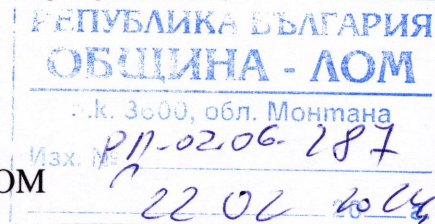 РЕПУБЛИКА БЪЛГАРИЯ
ОБЩИНА - ЛОМ
П.К. 3600, обл. Монтана
Изх. № РД-02-06-287
ОМ
22 02 2024